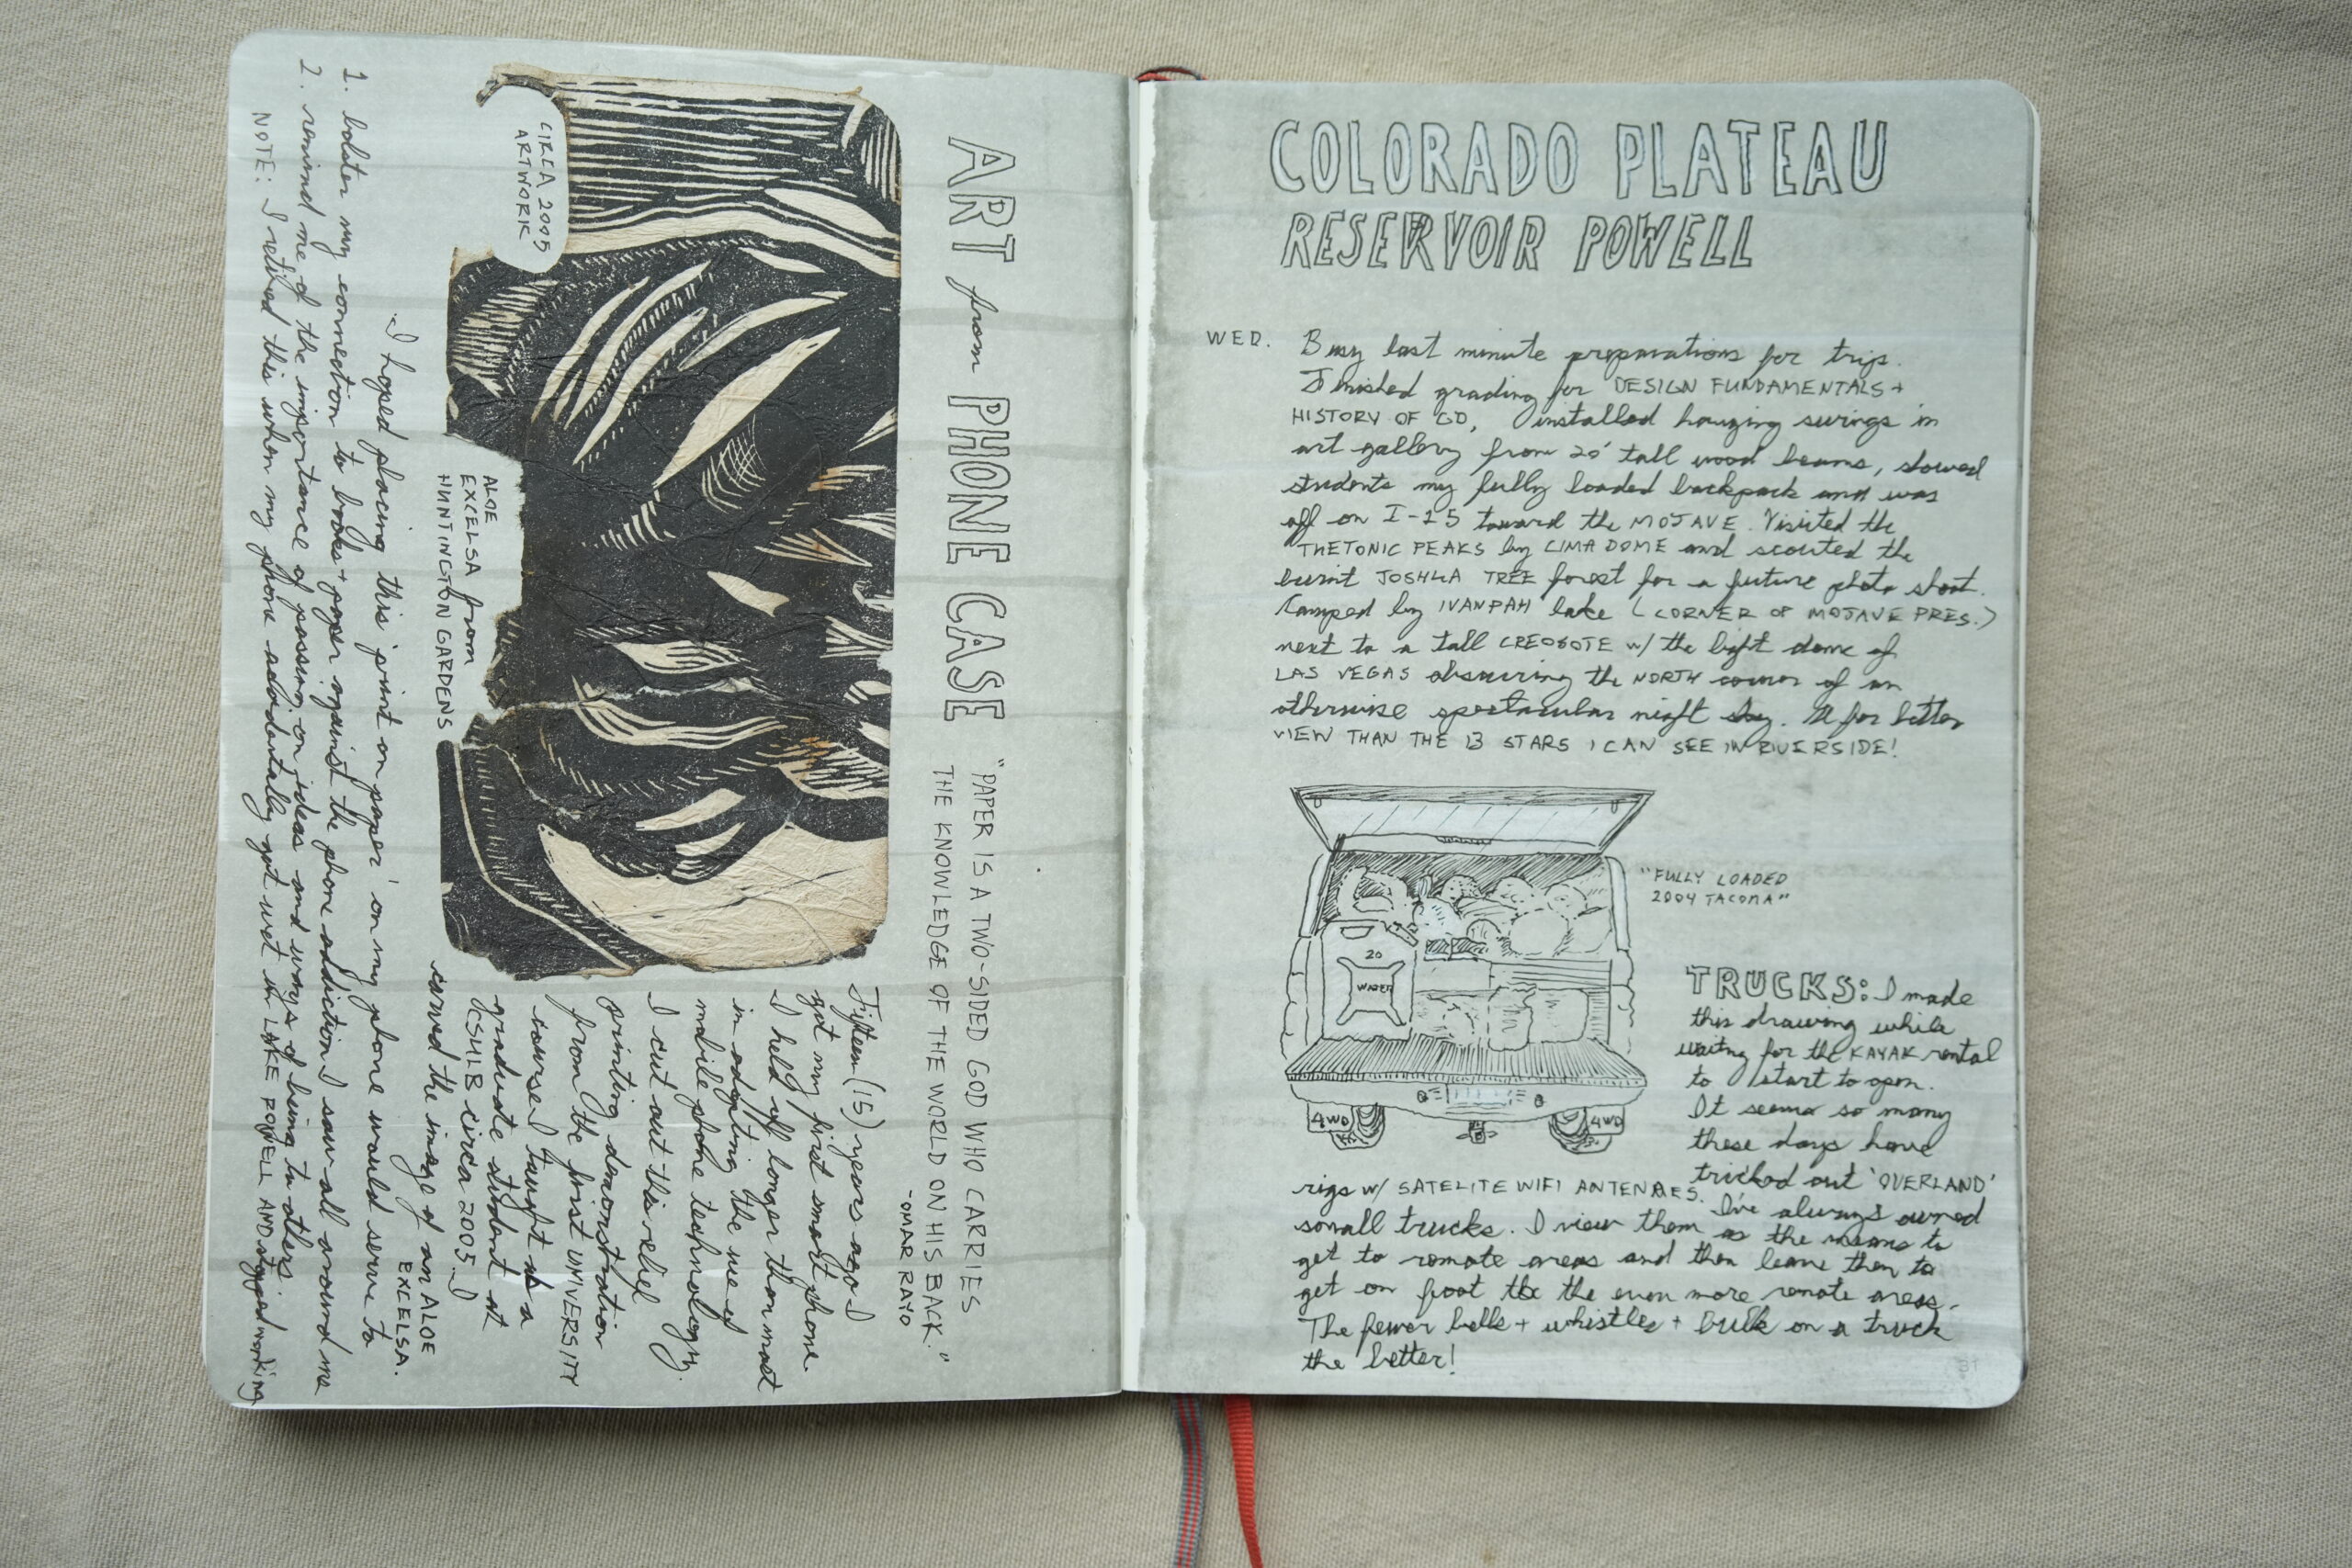 ART from PHONE CASE
"PAPER IS A TWO-SIDED GOD WHO CARRIES
THE KNOWLEDGE OF THE WORLD ON HIS BACK."
-OMAR RAYO
CIRCA 2005
ARTWORK
ALOE
EXCELSA from
HUNTINGTON GARDENS
Fifteen (15) years ago I
got my first smart phone.
I held off longer than most
in adopting the use of
mobile phone technology.
I cut out this relief
printing demonstration
from the first UNIVERSITY
course I taught as a
graduate student at
CSULB circa 2005. I
carved the image of an ALOE
EXCELSA.
I hoped placing this 'print on paper' on my phone would serve to
1. bolster my connection to books + paper against the phone addiction I saw all around me
2. remind me of the importance of passing on ideas and ways of being to others.
NOTE: I retired this when my phone accidentally got wet in LAKE POWELL AND stopped working
COLORADO PLATEAU
RESERVOIR POWELL
WED. Busy last minute preparations for trip.
Finished grading for DESIGN FUNDAMENTALS +
HISTORY OF GD, installed hanging swings in
art gallery from 20' tall wood beams, showed
students my fully loaded backpack and was
off on I-15 toward the MOJAVE. Visited the
TUETONIC PEAKS by CIMA DOME and scouted the
burnt JOSHUA TREE forest for a future photo shoot.
Camped by IVANPAH lake (CORNER OF MOJAVE PRES.)
next to a tall CREOSOTE w/ the light dome of
LAS VEGAS obscuring the NORTH corner of an
otherwise spectacular night sky. A far better
VIEW THAN THE 13 STARS I CAN SEE IN RIVERSIDE!
"FULLY LOADED
2004 TACOMA"
20
WATER
4WD 4WD
TRUCKS: I made
this drawing while
waiting for the KAYAK rental
to start to open.
It seems so many
these days have
tricked out 'OVERLAND'
rigs w/ SATELITE WIFI ANTENAES. I've always owned
small trucks. I view them as the means to
get to remote areas and then leave them to
get on foot to the even more remote areas.
The fewer bells + whistles + bulk on a truck
the better!